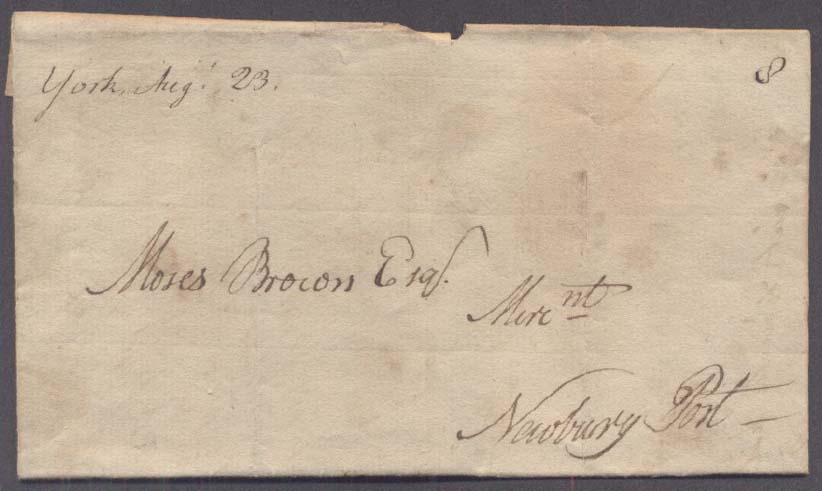 York, Augt 23.
8
Moses Brown Esqr.
Mercnt
Newbury Port